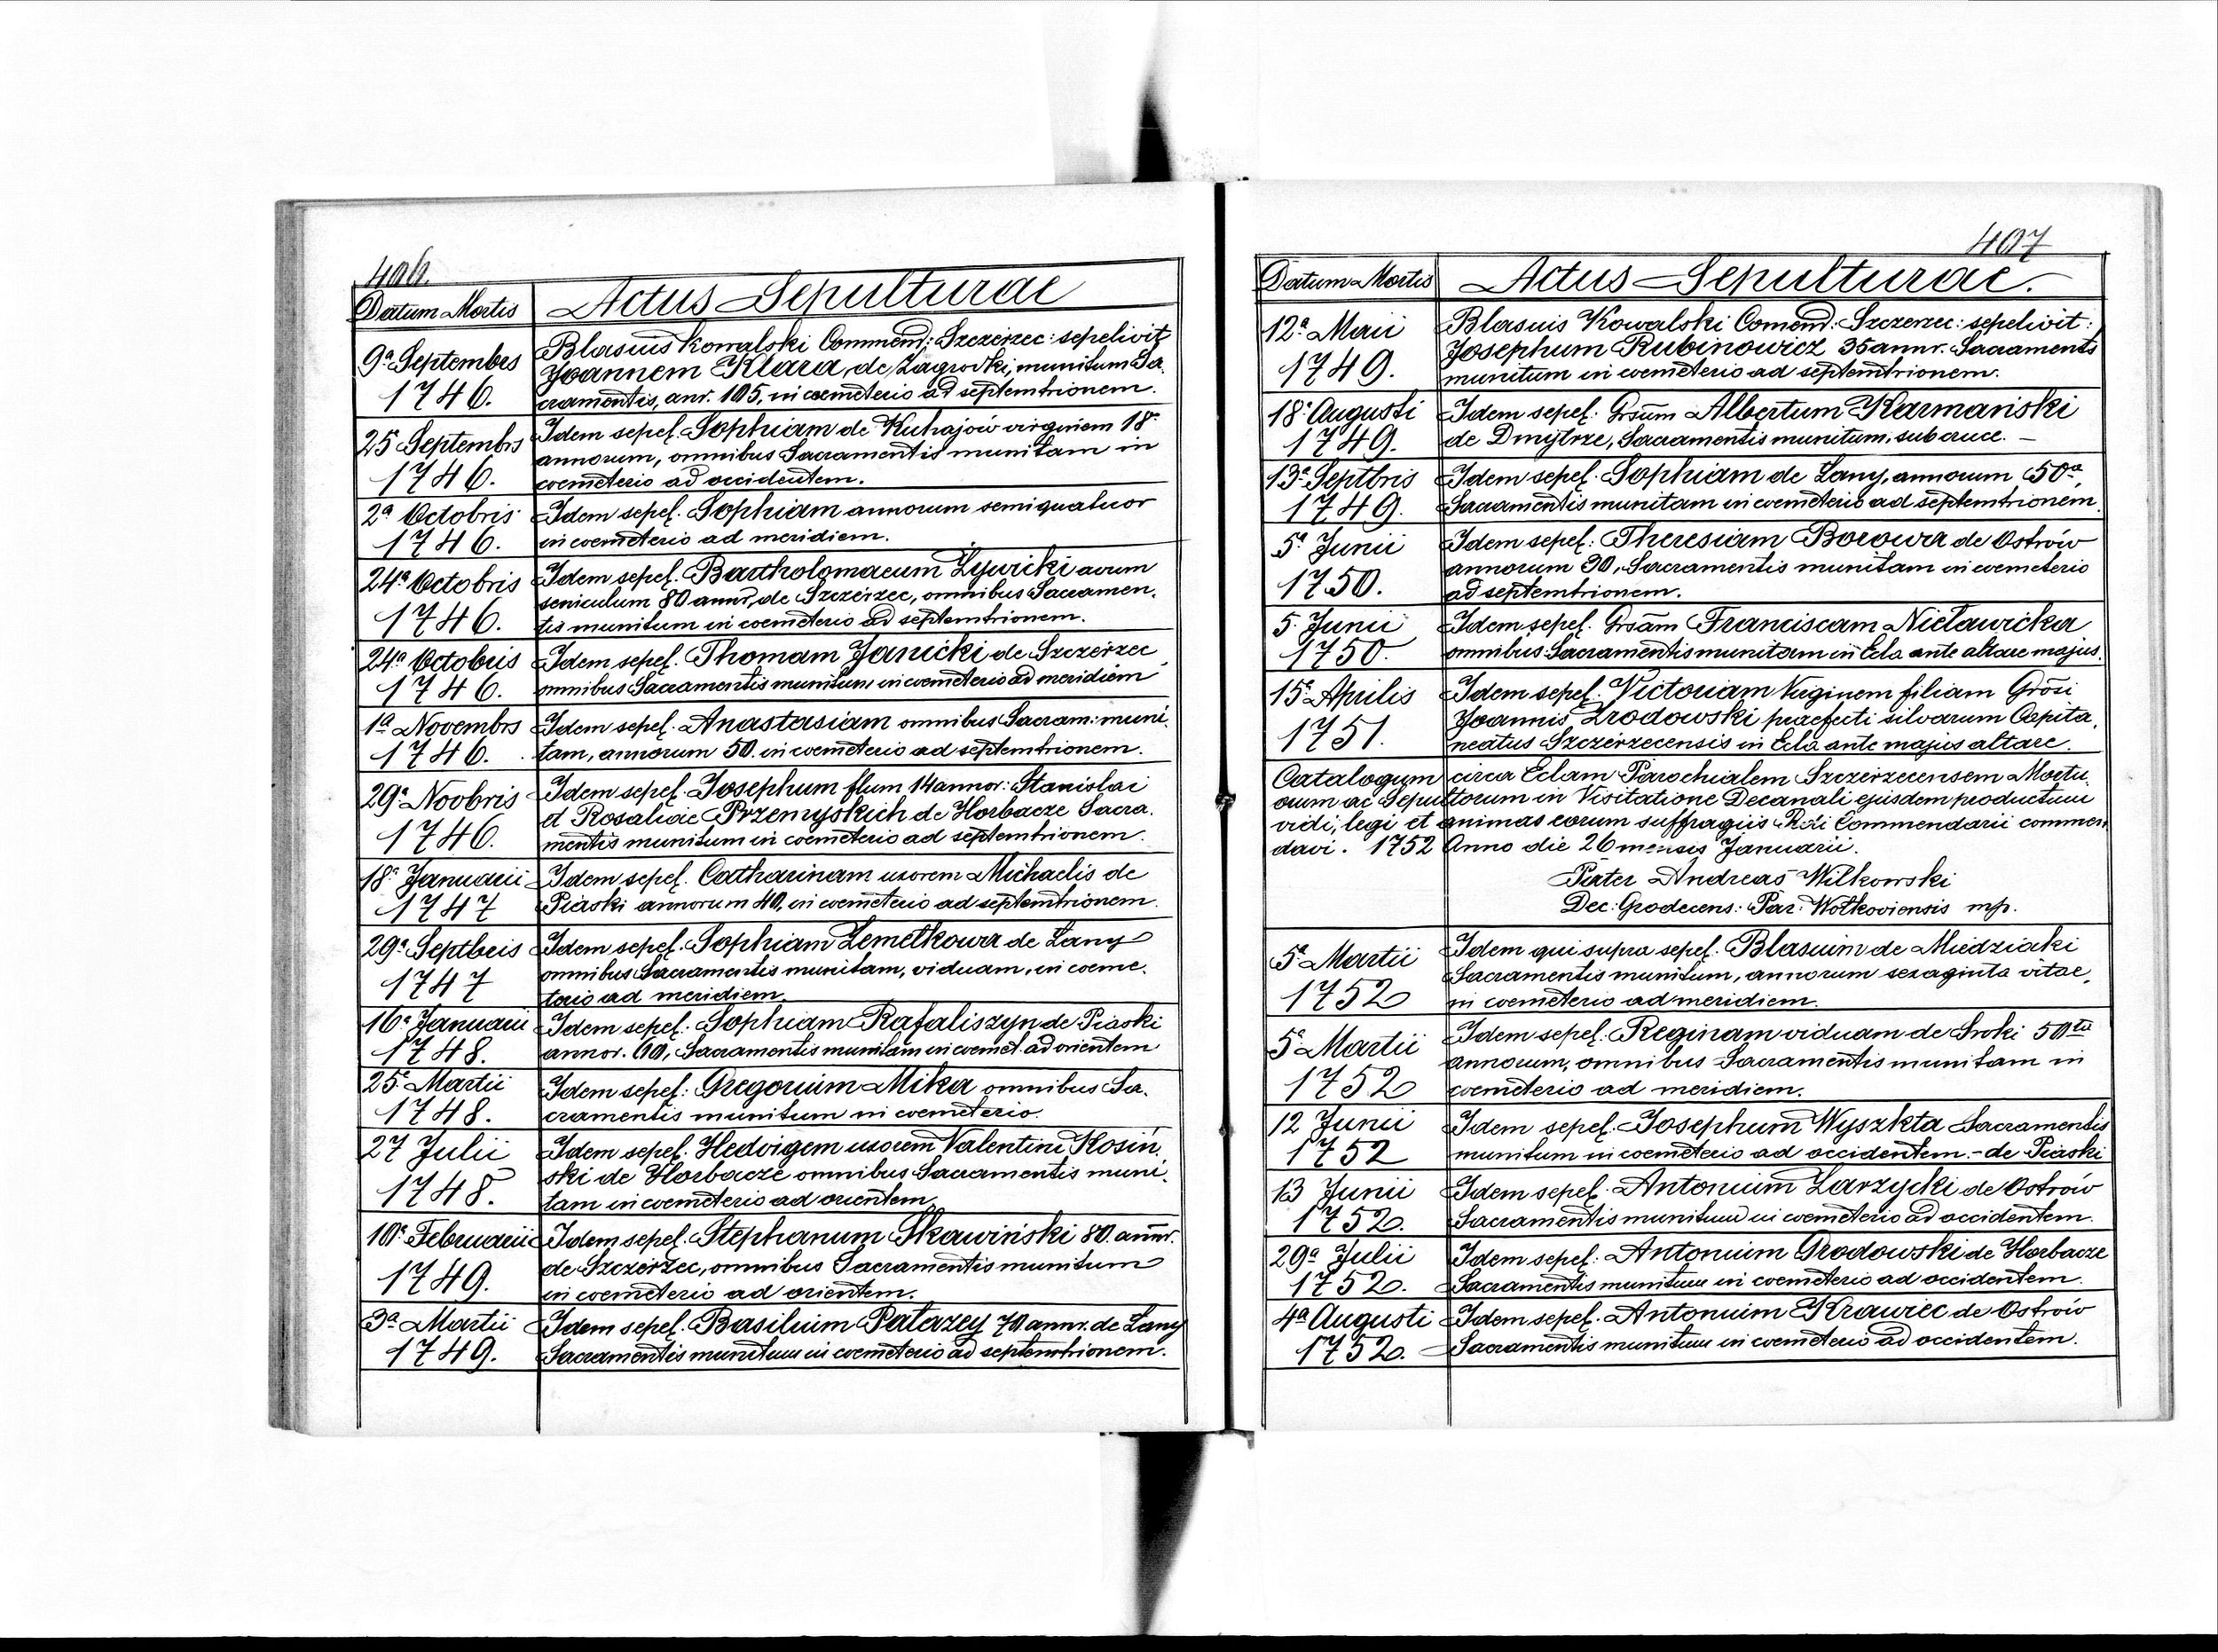 406.
Datum Mortis
Actus Sepulturae
9ª Septembrs
1746.
Blasius Kowalski Commend: Szczerzec: sepelivit
Joannem Klara, de Zagrodki, munitum Sa-
cramentis, anr. 105, in coemeterio ad septemtrionem.
25 Septembrs
1746.
Idem sepel. Sophiam de Kuhajów virginem 18.
annorum, omnibus Sacramentis munitam in
coemeterio ad occidentem.
2ª Octobris
1746.
Idem sepel. Sophiam annorum semiquatuor
in coemeterio ad meridiem.
24ª Octobris
1746.
Idem sepel. Bartholomaeum Żywicki avum
seniculum 80 annr, de Szczérzec, omnibus Sacramen-
tis munitum in coemeterio ad septemtrionem.
24ª Octobris
1746.
Idem sepel. Thomam Janicki de Szczérzec
omnibus Sacramentis munitum in coemeterio ad meridiem
1ª Novembrs
1746.
Idem sepel. Anastasiam omnibus Sacram: muni-
tam, annorum 50. in coemeterio ad septemtrionem.
29ª Novbris
1746.
Idem sepel. Josephum flum 14 annor: Stanislai
et Rosaliae Przemyskich de Horbacze Sacra-
mentis munitum in coemeterio ad septemtrionem.
18ª Januarii
1747
Idem sepel. Catharinam uxorem Michaelis de
Piaski annorum 40, in coemeterio ad septemtrionem.
29ª Septbris
1747
Idem sepel. Sophiam Zemełkowa de Lany
omnibus Sacramentis munitam, viduam, in coeme-
terio ad meridiem.
16ª Januarii
1748.
Idem sepel. Sophiam Rafaliszyn de Piaski
annor. 60, Sacramentis munitam in coemet. ad orientem
25ª Martii
1748.
Idem sepel: Gregorium Mika omnibus Sa-
cramentis munitum in coemeterio.
27 Julii
1748.
Idem sepel. Hedvigem uxorem Valentini Kosiń-
ski de Horbacze omnibus Sacramentis muni-
tam in coemeterio ad orientem
10ª Februarii
1749.
Idem sepel. Stephanum Skawiński 80. annr.
de Szczérzec, omnibus Sacramentis munitum
in coemeterio ad orientem.
3ª Martii
1749.
Idem sepel. Basilium Pałazey 70 annr. de Lany
Sacramentis munitum in coemeterio ad septemtrionem.
407
Datum Mortis
Actus Sepulturae.
12ª Maii
1749.
Blasius Kowalski Comend: Szczerzec: sepelivit:
Josephum Rubinowicz 35 annr. Sacraments
munitum in coemeterio ad septemtrionem.
18ª Augusti
1749.
Idem sepel. Grsum Albertum Karmański
de Dmytrze, Sacramentis munitum, sub cruce. —
13ª Septbris
1749.
Idem sepel. Sophiam de Lany, annorum 50ª,
Sacramentis munitam in coemeterio ad septemtrionem.
5ª Junii
1750.
Idem sepel: Theresiam Borowa de Ostrów
annorum 90, Sacramentis munitam in coemeterio
ad septemtrionem.
5 Junii
1750.
Idem sepel. Grsam Franciscam Nieławicka
omnibus Sacramentis munitam in Ecla ante altare majus.
15ª Aprilis
1751.
Idem sepel: Victoriam Virginem filiam Grosi
Joannis Zrodowski praefecti silvarum Capita-
neatus Szczérzecensis in Ecla ante majus altare.
Catalogum circa Eclam Parochialem Szczérzecensem Mortu-
orum ac Sepultorum in Visitatione Decanali ejusdem productum
vidi, legi et animas eorum suffragiis Rdi Commendarii commen-
davi. 1752 Anno die 26 mensis Januarii.
Pater Andreas Wilkowski
Dec: Grodecens: Par: Wołkoviensis mp.
5ª Martii
1752
Idem qui supra sepel. Blasium de Miedziaki
Sacramentis munitum, annorum sexaginta vitae,
in coemeterio ad meridiem.
5ª Martii
1752
Idem sepel. Reginam viduam de Sroki 50ta
annorum, omnibus Sacramentis munitam in
coemeterio ad meridiem.
12 Junii
1752
Idem sepel. Josephum Wyszkta Sacramentis
munitum in coemeterio ad occidentem. - de Piaski
13 Junii
1752.
Idem sepel. Antonium Zarzycki de Ostrów
Sacramentis munitum in coemeterio ad occidentem.
29ª Julii
1752.
Idem sepel: Antonium Grodowski de Horbacze
Sacramentis munitum in coemeterio ad occidentem.
4ª Augusti
1752.
Idem sepel. Antonium Krawiec de Ostrów
Sacramentis munitum in coemeterio ad occidentem.